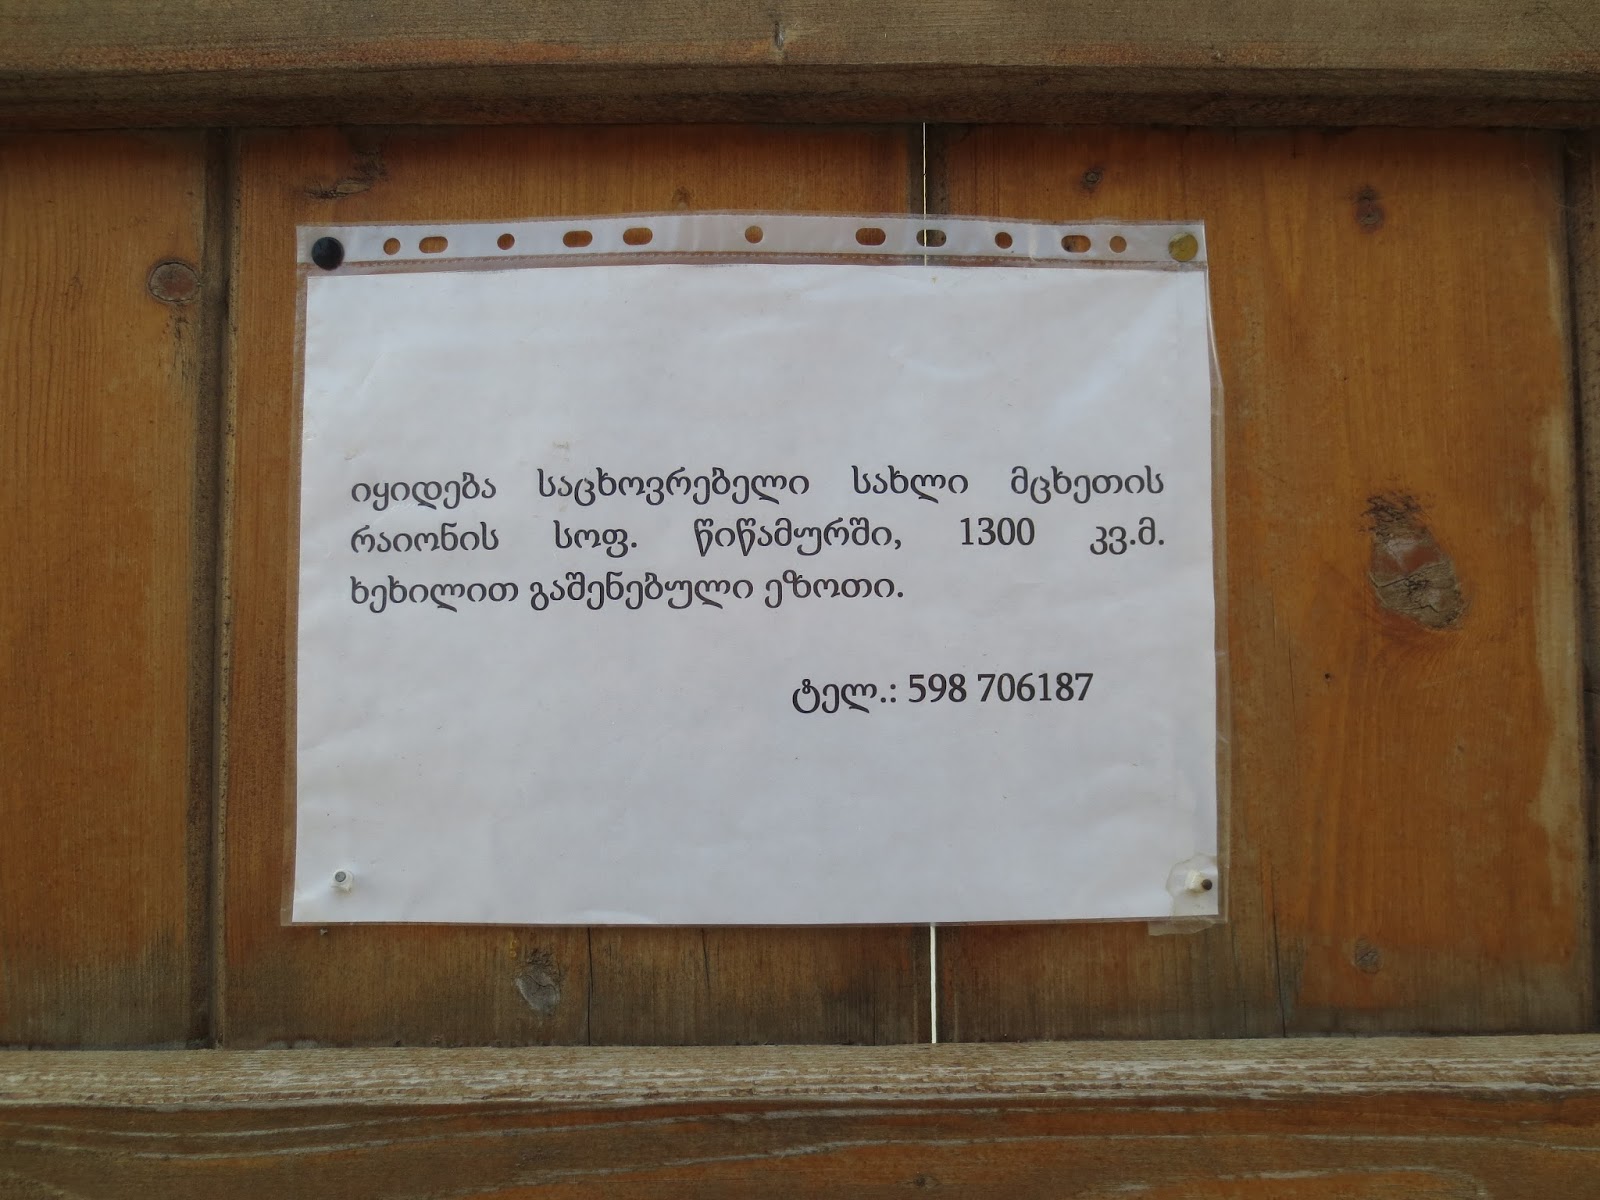 იყიდება საცხოვრებელი სახლი მცხეთის
რაიონის სოფ. წიწამურში, 1300 კვ.მ.
ხეხილით გაშენებული ეზოთი.
ტელ.: 598 706187